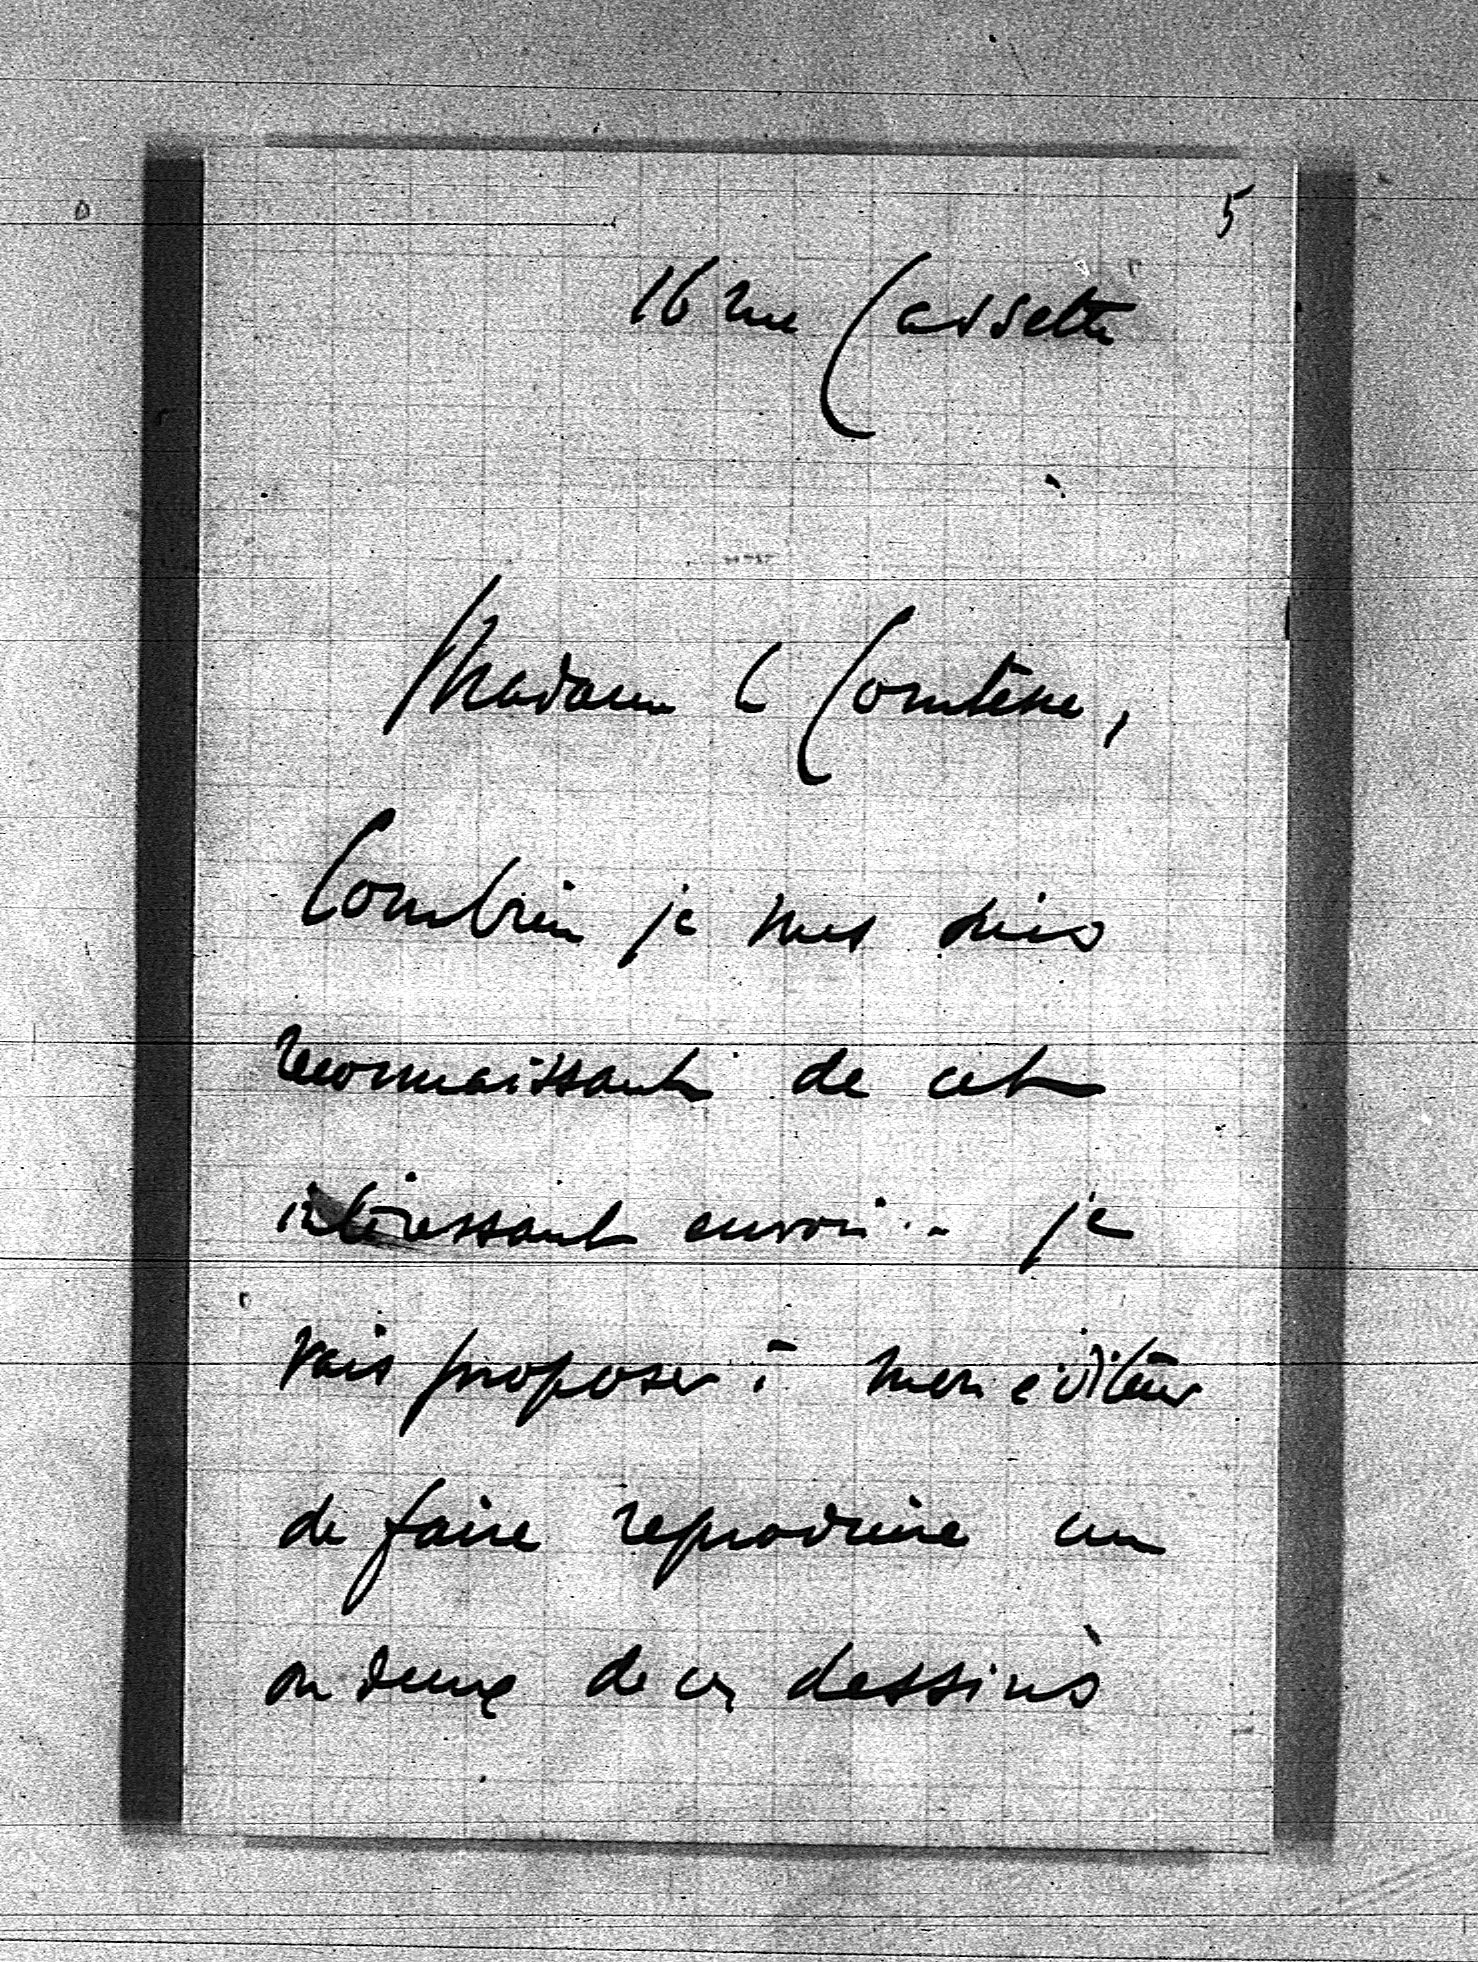 5
16 rue Cassette
Madame la Comtesse,
Combien je vous suis
reconnaissante de cet
intéressant envoi.. je
vais proposer à mon éditeur
de faire reproduire un
ou deux de ces dessins